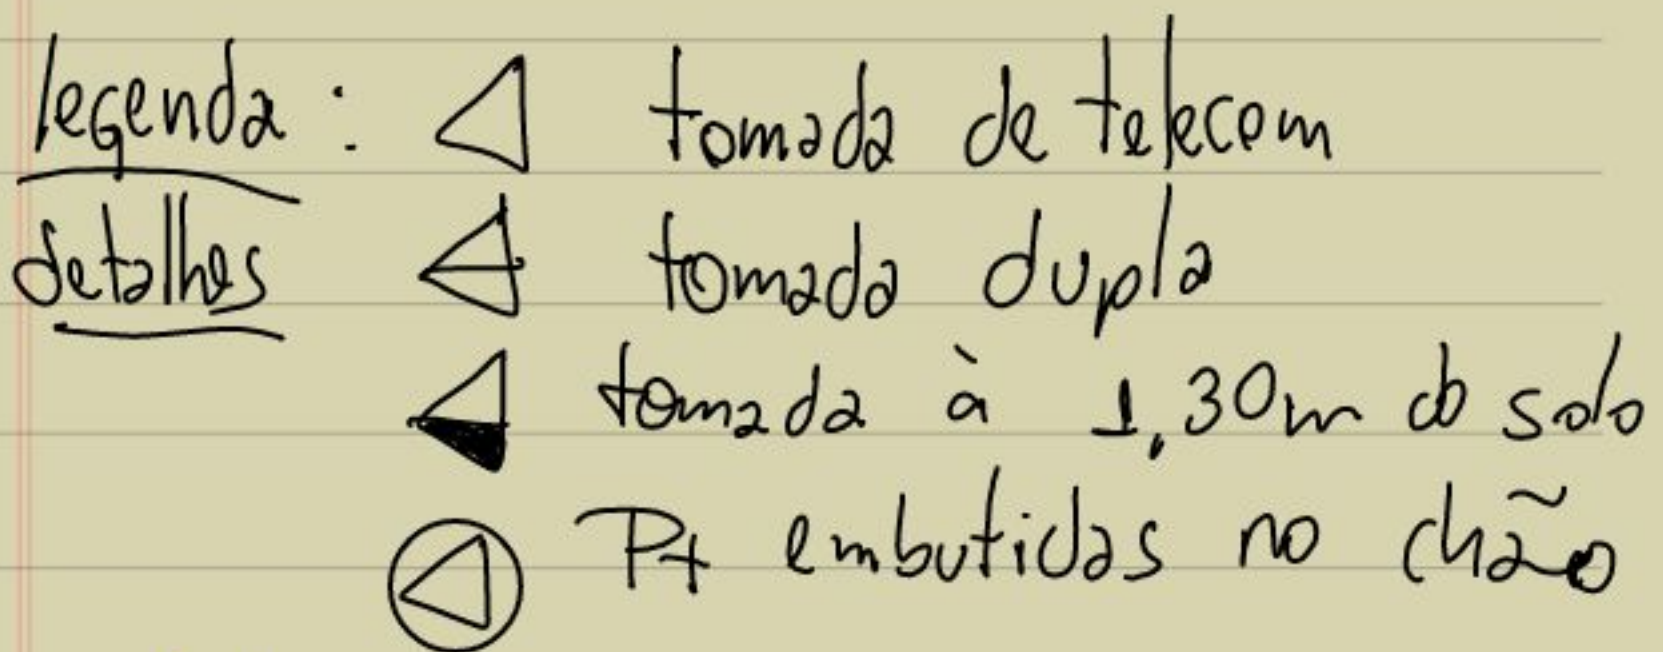 legenda : tomada de telecom
detalhes tomada dupla
tomada à 1,30m do solo
Pt embutidas no chão